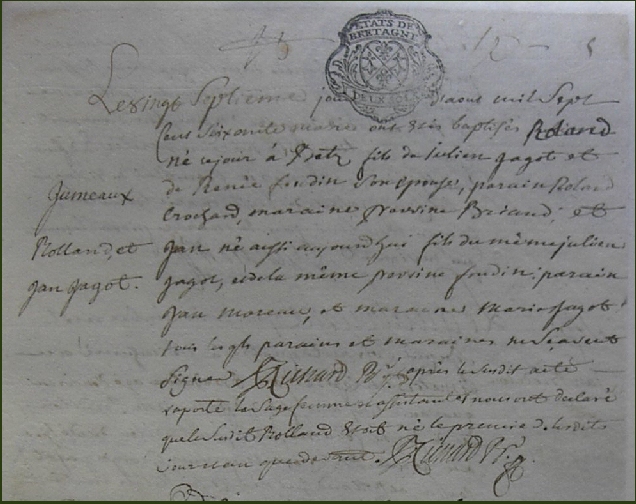 ETATS DE
BRETAGNE
DEUX SOLS
Le vingt Septieme jour d'aoust mil Sept
Cent Soixante ont etés baptisés Roland
né ce jour à fils de julien jagot et
de Renée foudin Son epouse, parain Roland
Crochard, maraine perrine Briand; et
jumeaux
Rolland, et
jan jagot.
jan né aussi aujourdhui fils du même julien
jagot, et de la même perrine foudin; parain
jan moreau, et maraine Marie jagot
tous lesqls parains et maraines ne Scavent
Signer après le Susdit acte
raporté la Sage femme et assistants nous ont declaré
que le Susdit Rolland etoit né le premier des dits
jour et an que dessus.